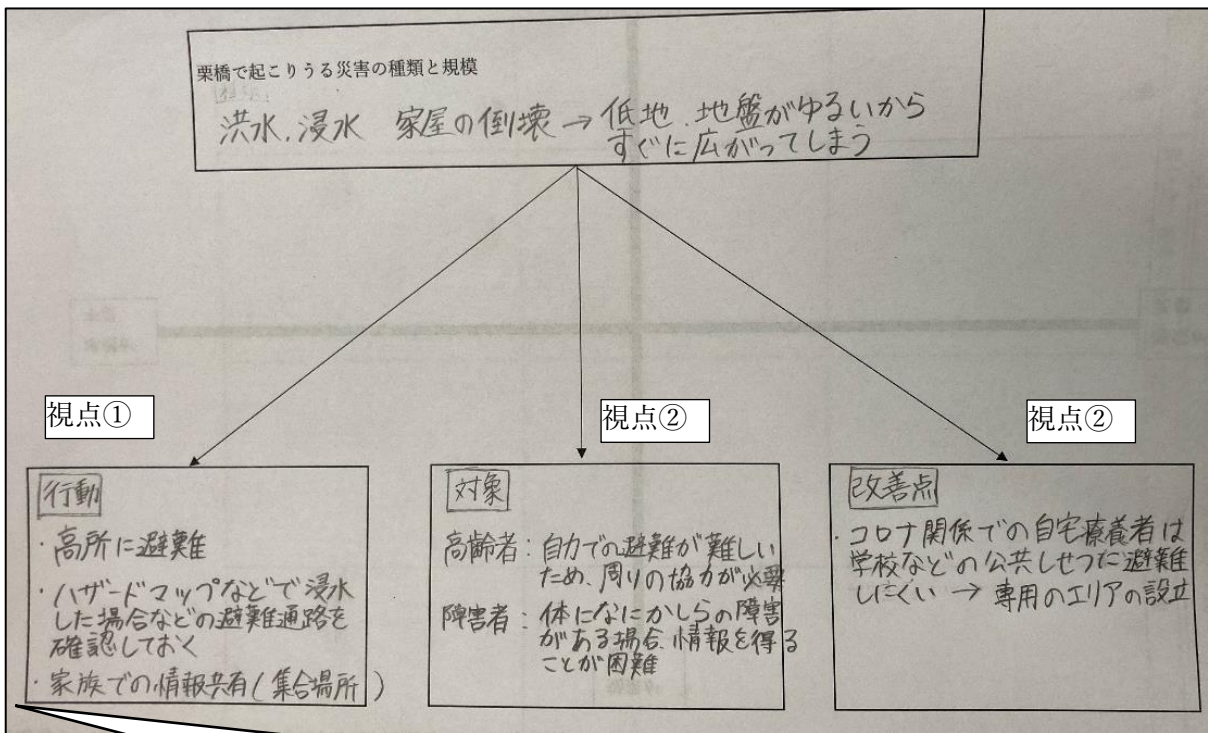 栗橋で起こりうる災害の種類と規模
洪水、浸水 家屋の倒壊→低地、地盤がゆるいから
すぐに広がってしまう
視点①
視点②
視点②
行動
・高所に避難
・ハザードマップなどで浸水
した場合などの避難通路を
確認しておく
・家族での情報共有(集合場所)
対象
高齢者:自力での避難が難しい
ため、周りの協力が必要
障害者:体になにかしらの障害
がある場合、情報を得る
ことが困難
改善点
・コロナ関係での自宅療養者は
学校などの公共しせつだと避難
しにくい→専用のエリアの設立